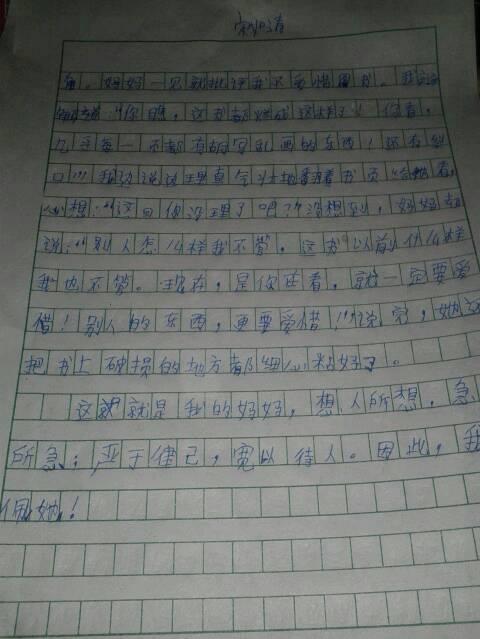 角。妈妈一见就批评我不爱惜图书。我
："你瞧，这书都烂成这样了！你看，
几乎每一页都有胡写乱画的东西！还有缺
口！"我边说边理直气壮地翻着书页给她看，
心想："这回你没理了吧？"没想到，妈妈却
说："别人怎么样我不管，这书以前什么样
我也不管。现在，是你在看，就一定要爱
惜！别人的东西，更要爱惜！"说完，她
把书上破损的地方都细心粘好了。
这就是我的妈妈，想人所想，急
所急；严于律己，宽以待人。因此，我
佩她！